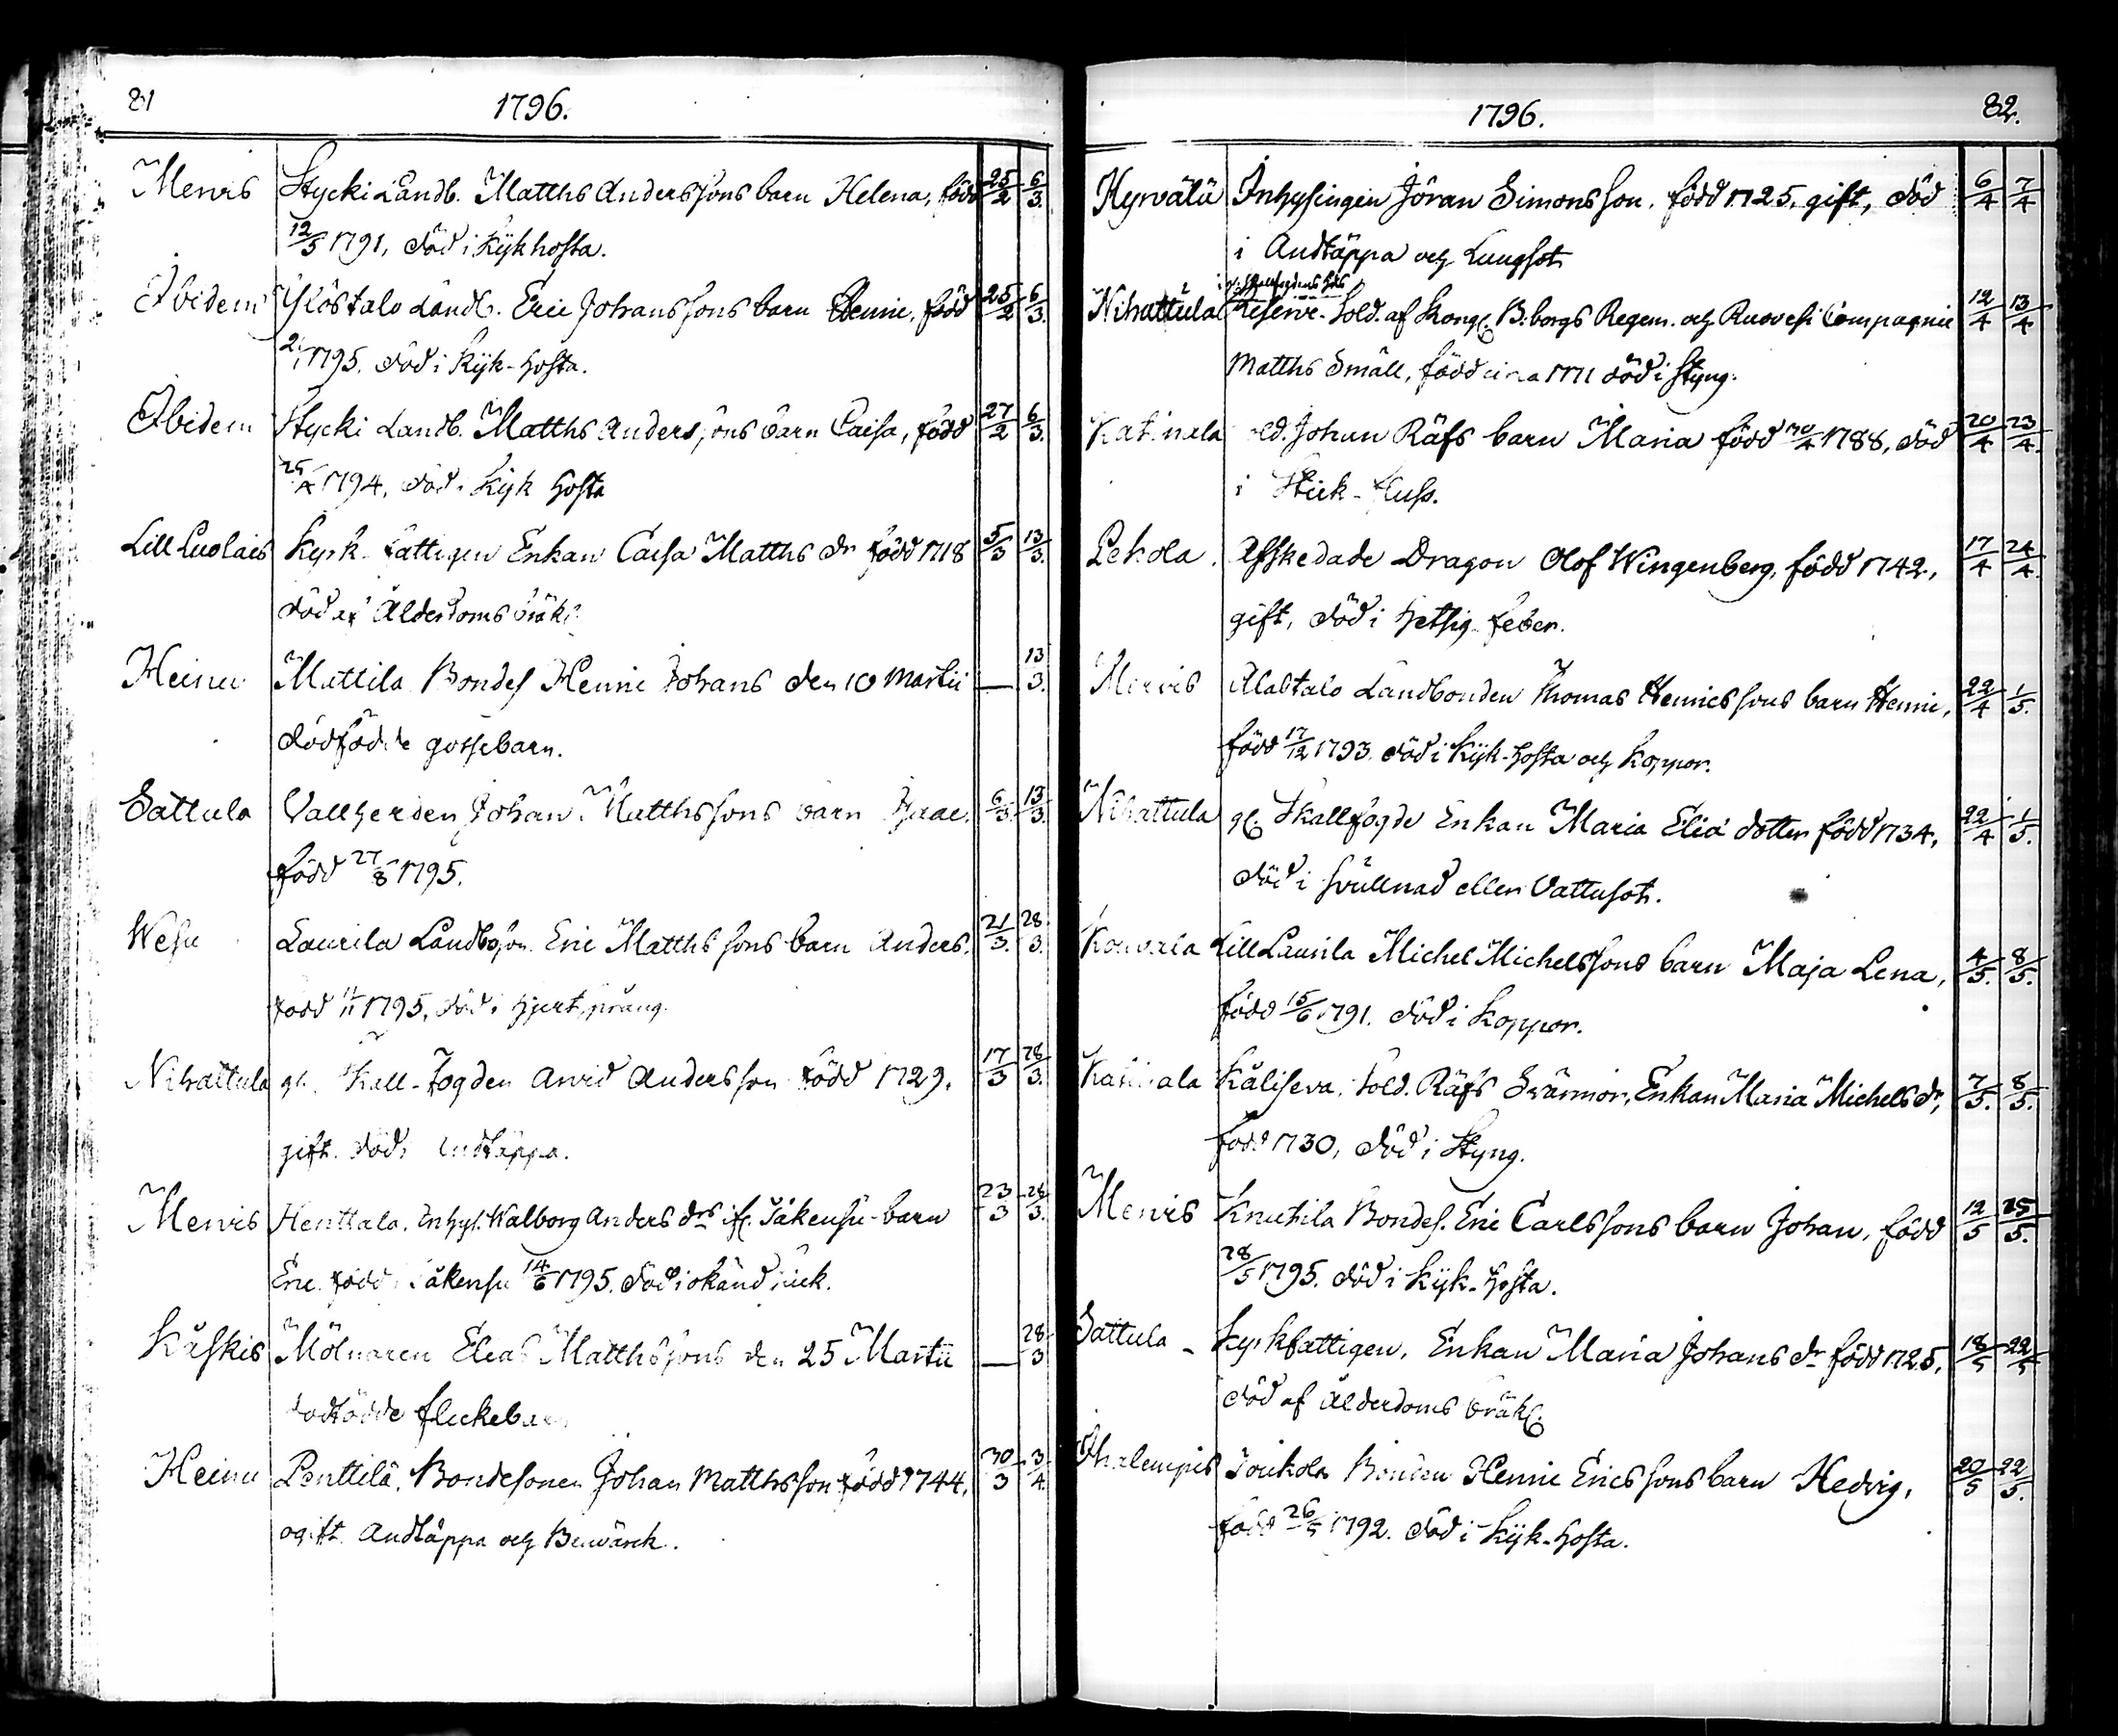 81
1796.
Mervis Stycki Landb. Matths Anderssons barn Helena, född 25/2 6/3.
12/5 1791, död i Kijkhosta.
Ibidem Ylöstalo Landb. Eric Johanssons barn Henric, född 25/2 6/3.
1795. död i Kijk-hosta.
Ibidem Stycki Landb. Matths Anderssons barn Caisa, född 27/2 6/3.
1794, död i Kijk hosta
Lill Luolais Kyrk-fattigen Enkan Caisa Matths dr född 1718 5/3 13/3.
död af Ålderdoms bräkl.
Heinu Mattila Bondes Henric Johans den 10 Martii — 13/3.
dödfödde gossebarn.
Sattula Vallherden Johan Matthssons barn Isaac. 6/3. 13/3.
född 27/8 1795.
Wesu Laurila Landbsson Eric Matthssons barn Anders. 21/3. 28/3.
född 1795, död i hjertsprång.
Nihattula gl. Skall-Fogden Arvid Andersson född 1729. 17/3 28/3.
gift. död i Andtäppa.
Mervis Henttala. Inhys. Walborg Anders drs if. Täkensu-barn 23/3 28/3.
Eric. född i Täkensu 14/6 1795. död i okänd siuk.
Kåskis Mölnaren Elias Matthssons den 25 Martii — 28/3
dödfödde flickebarn
Heinu Penttilä. Bondesonen Johan Matthsson född 1744. 30/3 3/4.
ogift. Andtäppa och Benvärck.
1796.
82.
Hyrvälä Inhysingen Jöran Simonsson. född 1725, gift, död 6/4 7/4
i Andtäppa och Lungsot
Nihattula Reserve-Sold. af Kongl. B:borgs Regem. och Ruovesi Compagnie 12/4 13/4
Matths Småll, född circa 1771 död i Styng.
Katinala Sold. Johan Räfs barn Maria född 30/4 1788, död 20/4 23/4.
i Stick-fluss.
Pekola. Afskedade Dragon Olof Wingenberg, född 1742, 17/4 24/4.
gift, död i hetsig-feber.
Mervis Alastalo Landbonden Thomas Henricssons barn Henric, 22/4 1/5.
född 17/12 1793. död i Kijk-hosta och Koppor.
Nihattula gl. Skallfogde Enkan Maria Eliæ dotter född 1734, 22/4 1/5.
död i svullnad eller Vattusot.
Konvala Lill Laurila Michel Michelssons barn Maja Lena, 4/5. 8/5.
född 15/6 1791. död i Koppor.
Katinala Käliseva. Sold. Räfs Svärmor, Enkan Maria Michels dr, 7/5. 8/5.
född 1730, död i Styng.
Mervis Knutila Bondes. Eric Carlssons barn Johan, född 12/5 15/5.
28/5 1795. död i Kijk-hosta.
Sattula - Kyrkfattigen, Enkan Maria Johans dr född 1725, 18/5 22/5
död af Ålderdoms bräkl.
Ihalempis Toukola Bonden Henric Ericssons barn Hedvig, 20/5 22/5.
född 26/5 1792. död i Kijk-hosta.